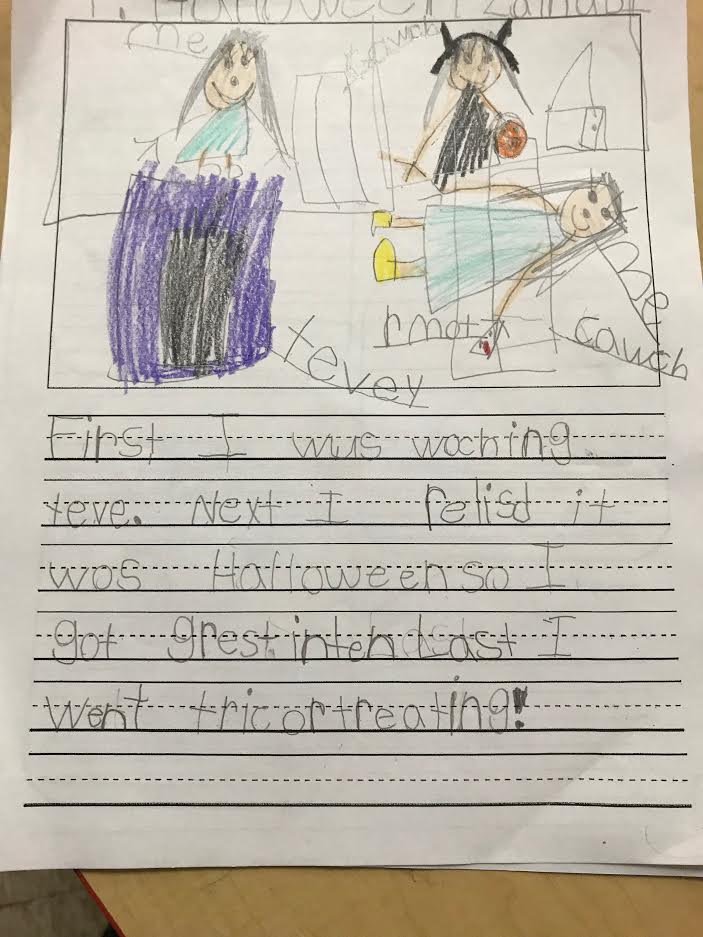 Halloween Zainab
me
me
rmot
cauch
tevey
First I wus woching
teve. Next I relisd it
wos Halloween so I
got grest intend Last I
went tricortreating!